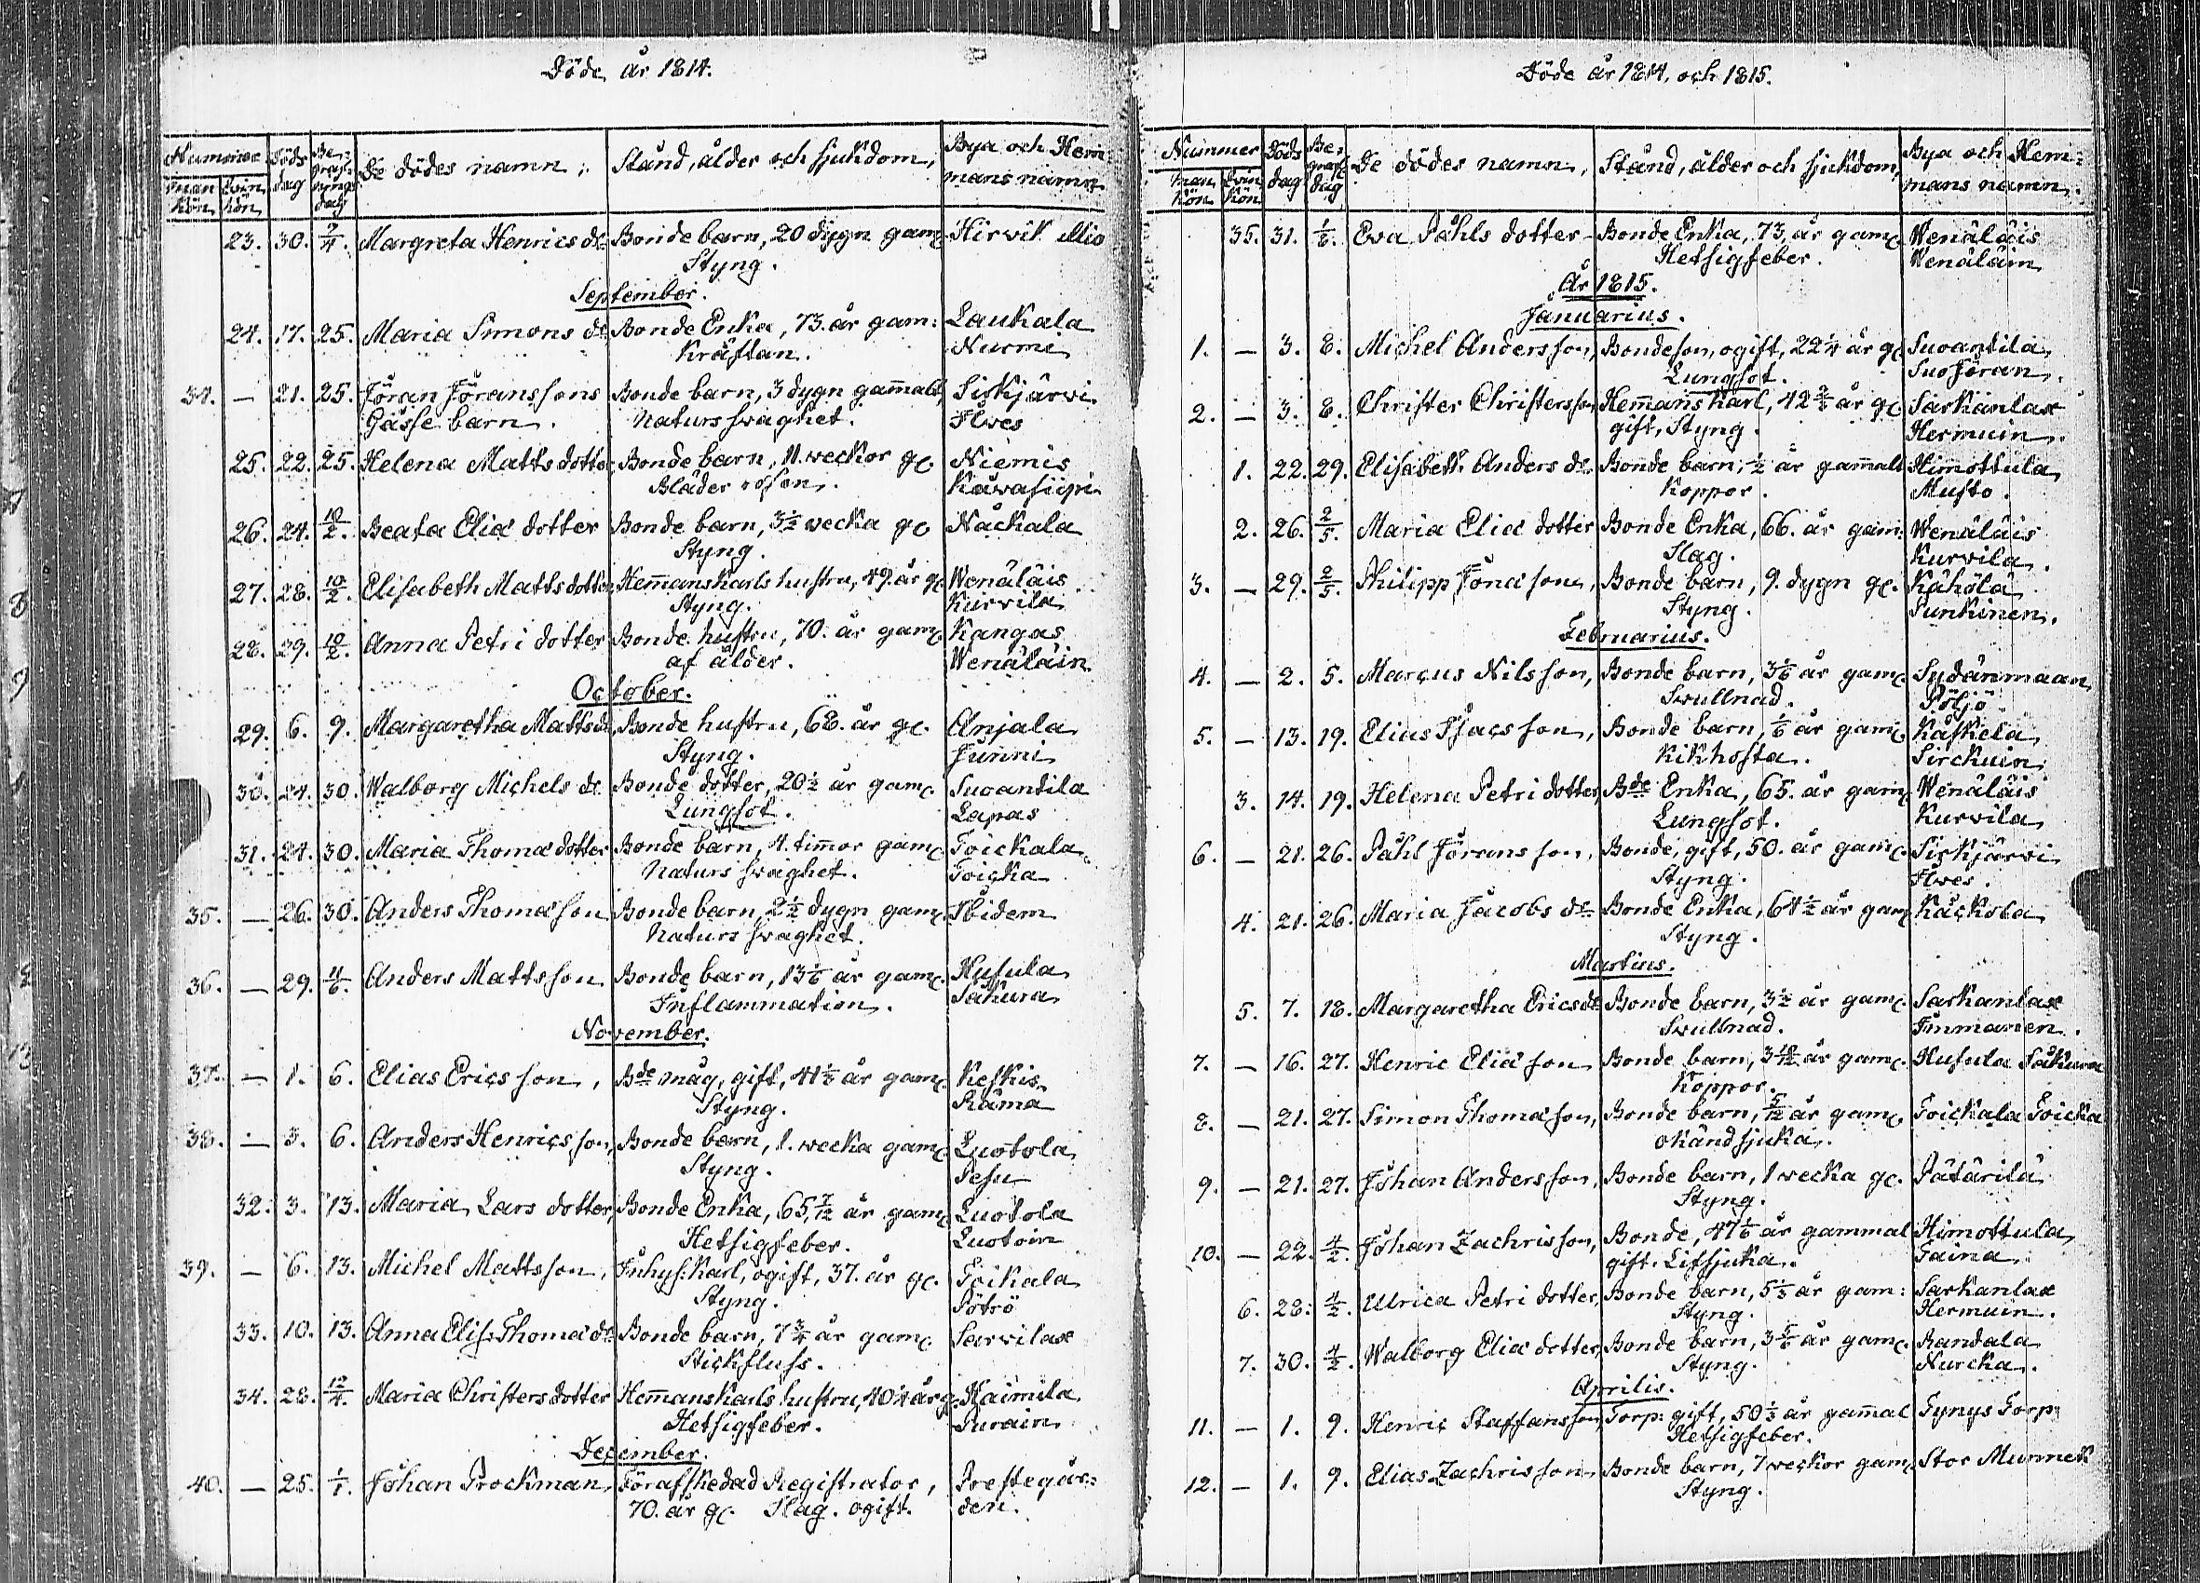 Döde år 1814.
Nummer
man kön
qvin kön
Döds dag
Begrafnings dag
De dödes namn;
Stånd, ålder och sjukdom,
Bya och Hemmans namn
23. 30. 9/4. Margreta Henrics dr Bonde barn, 20 dygn gam. Hirvik Mio
Styng.
September.
24. 17. 25. Maria Simons dr Bonde Enka, 73. år gam: Laukala
Kräftan. Nurmi
34. — 21. 25. Jöran Göranssons Bonde barn, 3 dygn gamalt, Sirkjärvi
Gässe barn. Naturs swaghet. Ilves
25. 22. 25. Helena Matts dotter Bonde barn, 11. weckor gl. Niemis
Bläder rosen. Kåvasiipi
26. 24. 10/2. Beata Eliæ dotter Bonde barn, 3 1/2 wecka gl Näckala
Styng.
27. 28. 10/2. Elisabeth Matts dotter Hemans Karls hustru, 49. år gl. Wenäläis
Styng. Kurvila
28. 29. 10/2. Anna Petri dotter Bonde hustru, 70. år gam. Kangas
af ålder. Wenäläin
October.
29. 6. 9. Margaretha Matts dr Bonde hustru, 68. år gl. Anjala
Styng. Junni
30. 24. 30. Walborg Michels dr Bonde dotter, 20 1/2 år gam. Suoantila
Lungsot. Lapas
31. 24. 30. Maria Thomæ dotter Bonde barn, 4. timmor gam. Toickala
Naturs swaghet. Toicka
35. — 26. 30. Anders Thomæ son Bonde barn, 2 1/2 dygn gam. Ibidem
Naturs swaghet.
36. — 29. 11/6. Anders Mattsson Bonde barn, 13 1/6 år gam. Husula
Inflammation. Pakura
November.
37. — 1. 6. Elias Erics son, Bde måg, gift, 41 1/3 år gam. Keskis
Styng. Räma
38. — 3. 6. Anders Henrics son, Bonde barn, 1. wecka gam. Luotola
Styng. Pesu
32. 3. 13. Maria Lars dotter, Bonde Enka, 65 7/12 år gam. Luotola
Hetsigfeber. Luotoin
39. — 6. 13. Michel Mattsson, Inhys: Karl, ogift, 37. år gl. Toikala
Styng. Pötrö
33. 10. 13. Anna Elis: Thomæ dr Bonde barn, 7 3/4 år gam. Sarvilax
Stickfluss.
34. 28. 12/4. Maria Christers dotter Hemans Karls hustru, 40 1/4 år g. Haimila
Hetsigfeber. Purain
December.
40. — 25. 1/1. Johan Brockman, Förafskedad Registrator, Prestegår:
70. år gl. Slag. ogift. den.
Döde år 1814, och 1815.
Nummer
man kön
qvin kön
Döds dag
Begraf dag
De dödes namn,
Stånd, ålder och sjukdom,
Bya och Hemmans namn.
35. 31. 1/8. Eva Påhls dotter Bonde Enka, 73. år gam. Wenäläis
Hetsigfeber. Wenäläin
År 1815.
Januarius.
1. — 3. 8. Michel Andersson, Bondeson, ogift, 22 1/4 år gl Suoantila
Lungsot. Suo Jöran.
2. — 3. 8. Christer Christersson Hemans Karl, 42 2/3 år gl Sarkanlax
gift, Styng. Hermuin.
1. 22. 29. Elisabeth Anders dr Bonde barn, 1/2 år gamalt Himottula
Koppor. Musto.
2. 26. 2/5. Maria Eliæ dotter Bonde Enka, 66. år gam: Wenäläis
Slag. Kurvila.
3. — 29. 2/5. Philipp Jonæ son, Bonde barn, 9. dygn gl. Kähölä
Styng. Punkinen.
Februarius.
4. — 2. 5. Marcus Nilsson, Bonde barn, 3 1/6 år gam. Sydänmaan
Swullnad. Pöljö
5. — 13. 19. Elias Isacsson, Bonde barn, 1/6 år gam. Kaskela
Kikhosta. Sirckuin
3. 14. 19. Helena Petri dotter Bde Enka, 65. år gam. Wenäläis
Lungsot. Kurvila
6. — 21. 26. Påhl Göransson, Bonde, gift, 50. år gam. Sirkjärvi
Styng. Ilves.
4. 21. 26. Maria Jacobs dr Bonde Enka, 64 1/2 år gam. Käckola
Styng.
Martius.
5. 7. 18. Margaretha Erics dr Bonde barn, 3 1/2 år gam. Sarkanlax
Swullnad. Immanen.
7. — 16. 27. Henric Eliæ son Bonde barn, 3 10/12 år gam. Husula Pakura
Koppor.
8. — 21. 27. Simon Thomæ son, Bonde barn, 5/12 år gam. Toickala Toicka
okänd sjuka.
9. — 21. 27. Johan Andersson, Bonde barn, 1 wecka gl. Pätärilä
Styng.
10. — 22. 4/2. Johan Zachrisson, Bonde, 47 1/6 år gammal Himottula
gift. Litsjuka. Taina.
6. 28. 4/2. Ulrica Petri dotter, Bonde barn, 5 1/3 år gam: Sarkanlax
Styng. Hermuin.
7. 30. 4/2. Walborg Eliæ dotter, Bonde barn, 3 5/6 år gam. Randala
Styng. Nurcka.
Aprilis.
11. — 1. 9. Henric Staffansson, Torp: gift, 50 1/3 år gamal Tynys Torp
Hetsigfeber.
12. — 1. 9. Elias Zachrisson Bonde barn, 7 weckor gam. Stor Munnek
Styng.